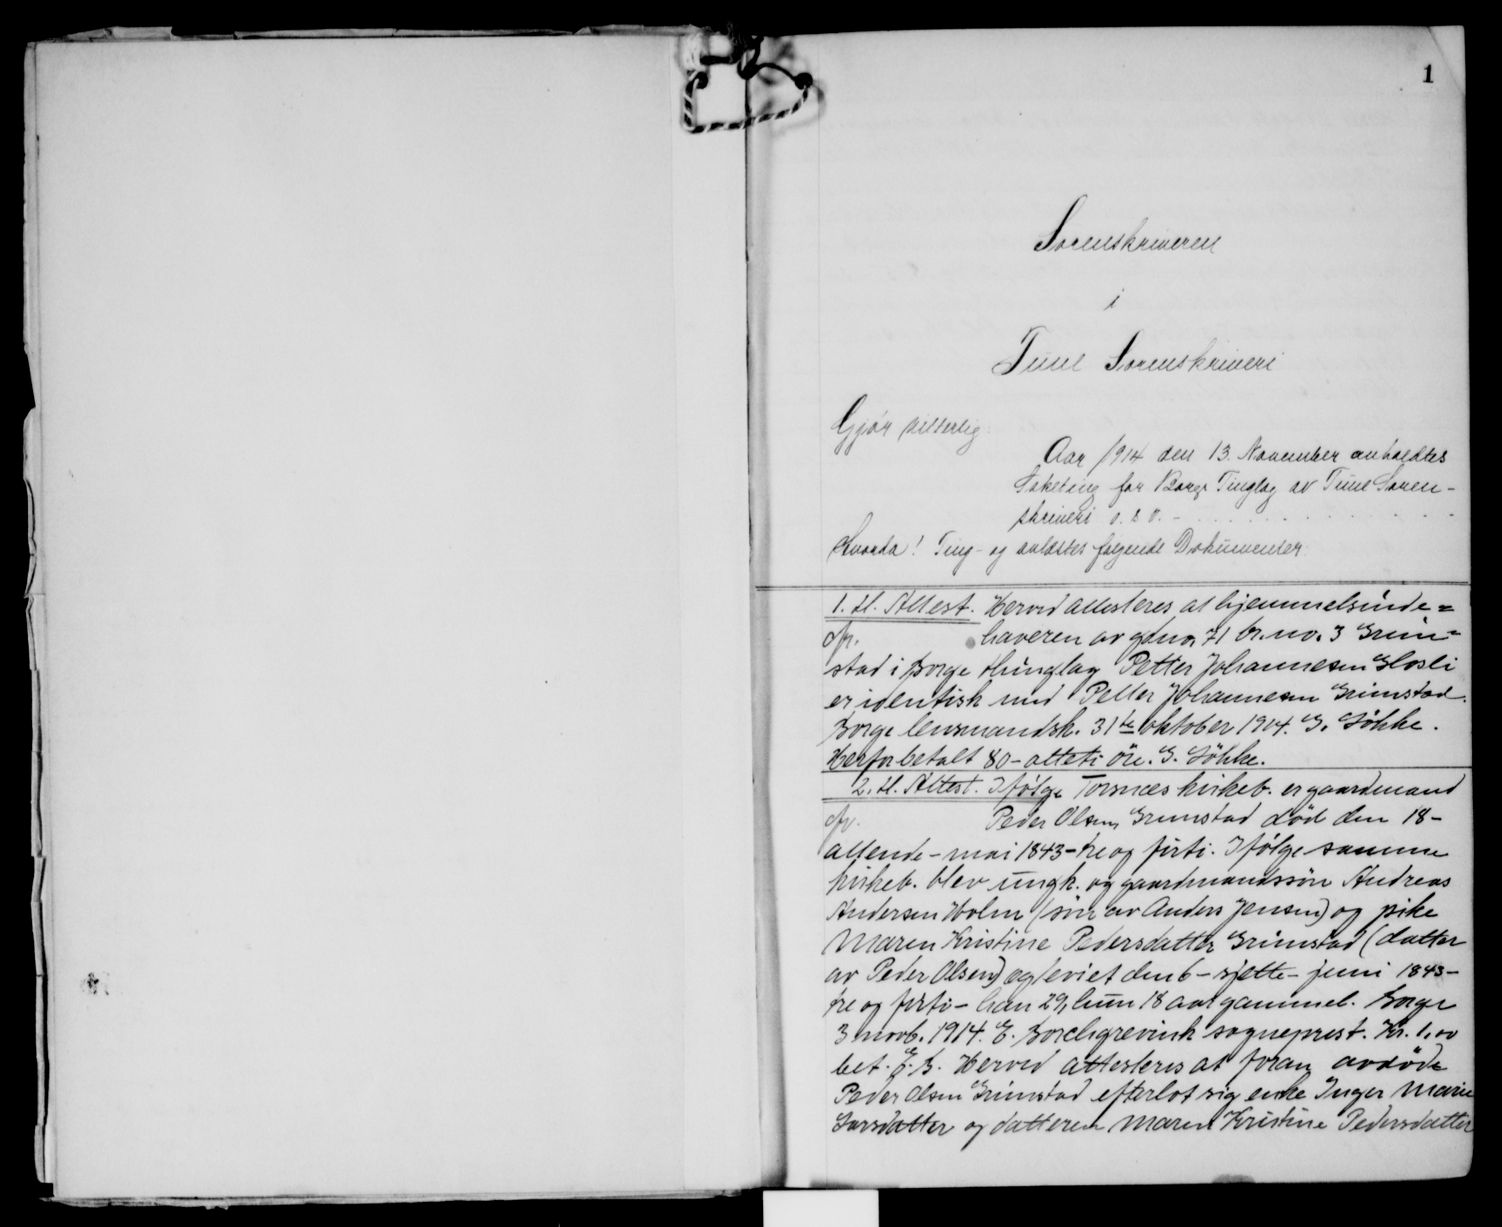 1
Sorenskriveren
i
Tune Sorenskriveri
Gjør vitterlig:
Aar 1914 den 13. November avholdtes
Saketing for Borge Tinglag av Tune Soren-
skriveri o. s. v. - . . . . . . . .
Hvorda! Ting- og avlæstes følgende Dokumenter:
1. H. Attest. Herved attesteres at hjemmelsinde=
haveren av gdno. 71 br. no. 3 Grim=
stad i Borge thinglag Petter Johannesen Glosli
er identisk med Petter Johannesen Grimstad.
Borge lensmandsk. 31te oktober 1914. G. Løkke.
Herfor betalt 80-otteti öre. G. Løkke.
2. H. Attest. Ifølge Torsnæs kirkeb. er gaardmand
Peder Olsen Grimstad död den 18-
attende-mai 1843-tre og firti. Ifølge samme
kirkeb. blev ungk. og gaardmandssön Andreas
Andersen Holm (sön av Anders Jensen) og pike
Maren Kristine Pedersdatter Grimstad (datter
av Peder Olsen) egteviet den 6-sjette-juni 1843-
tre og firti- han 29, hun 18 aar gammel. Borge
3 novb. 1914. E. Borchgrevink sogneprest. Kr. 1.00
bet. E. B. Herved attesteres at foran avdöde
Peder Olsen Grimstad efterlot sig enke Inger Marie
Larsdatter og datteren Maren Kristine Pedersdatter